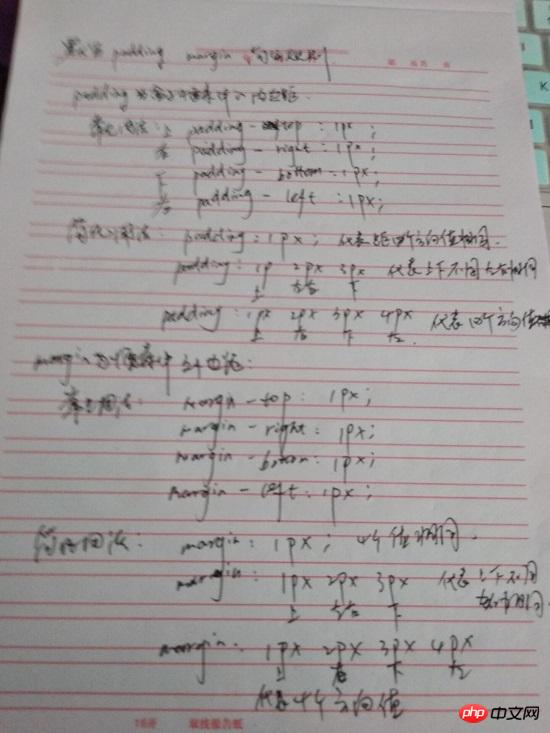 padding margin 的
padding 内边距.
单边用法: 上 padding - top : 1px ;
右 padding - right : 1px ;
下 padding - bottom : 1px ;
左 padding - left : 1px ;
padding : 1px ; 代表 四个方向值相同.
padding : 1p 2px 3px 代表上下不同左右相同
上 左右 下
padding : 1px 2px 3px 4px 代表四个方向值
上 右 下 左
margin 外边距:
margin - top : 1px ;
margin - right : 1px ;
margin - bottom : 1px ;
margin - left : 1px ;
margin : 1px ; 4个值相同.
margin : 1px 2px 3px 代表上下不同
上 左右 下 左右相同.
margin : 1px 2px 3px 4px
上 右 下 左
代表4个方向值
双线报告纸
php 中文网